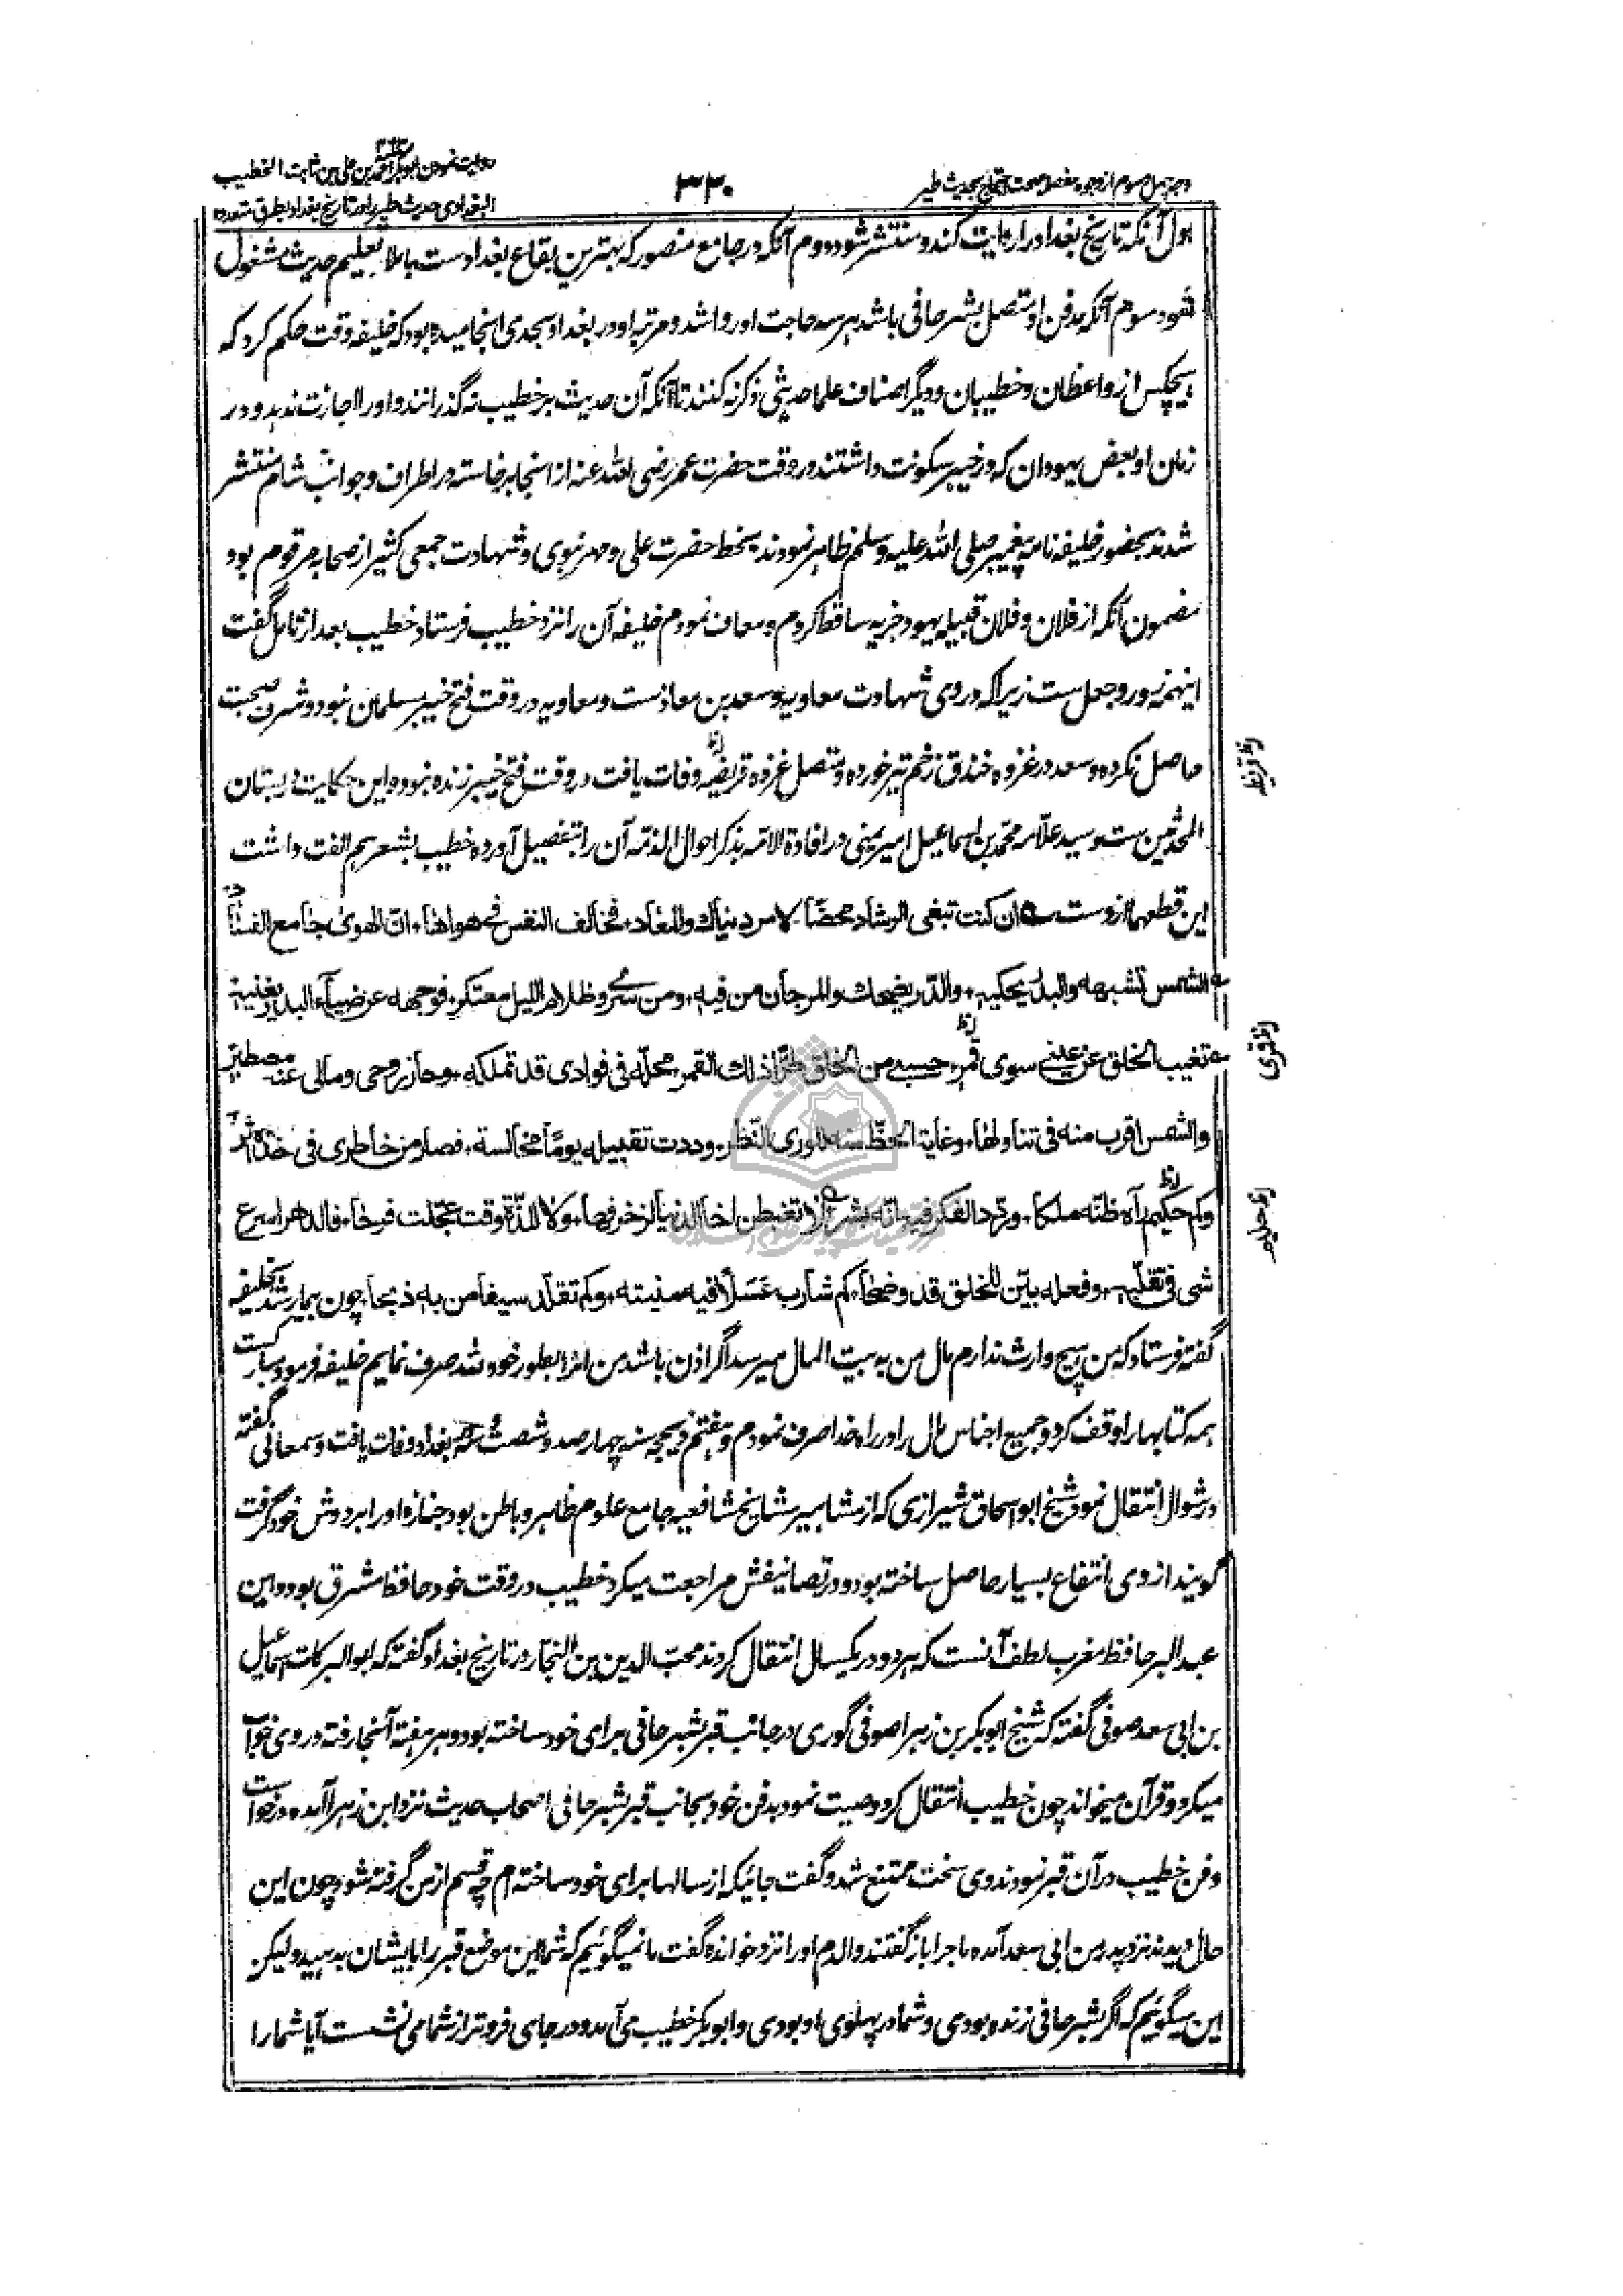 وجه چهل و سوم از وجوه مفصله صحت احتجاج بحدیث طیر
۳۳۰
روایت نمودن ابوبکر احمد بن علی بن ثابت الخطیب
البغدادی حدیث طیر را در تاریخ بغداد بطرق متعدده
اول آنکه تاریخ بغداد را روایت کند و منتشر شود دوم آنکه در جامع منصور که بهترین بقاع بغداد ست باملا و تعلیم حدیث مشغول
شود سوم آنکه مدفن او متصل بشر حافی باشد هر سه حاجت او روا شد و مرتبه او در بغداد بحدی انجامیده بود که خلیفه وقت حکم کرد که
هیچکس از واعظان و خطیبان و دیگر اصناف علما حدیثی ذکر نکنند تا آنکه آن حدیث بر خطیب نگذرانند و او را اجازت ندهد و در
زمان او بعض یهودان که در خیبر سکونت داشتند در وقت حضرت عمر رضی الله عنه از انجا برخاسته در اطراف و جوانب شام منتشر
شدند بحضور خلیفه نامه پیغمبر صلی الله علیه وسلم ظاهر نمودند بخط حضرت علی و مهر نبوی و شهادت جمعی کثیر از صحابه مرقوم بود
مضمون آنکه از فلان و فلان قبیله یهود جزیه ساقط کردم و معاف نمودم خلیفه آن را نزد خطیب فرستاد خطیب بعد از تامل گفت
اینهمه زور و جعل ست زیرا که در وی شهادت معاویه و سعد بن معاذ ست و معاویه در وقت فتح خیبر مسلمان نبود و شرف صحبت
حاصل نکرده و سعد در غزوه خندق زخم تیر خورده و متصل غزوه قریضه وفات یافت در وقت فتح خیبر زنده نبوده این حکایت در بستان
المحدثین ست و سید علامه محمد بن اسماعیل امیر یمنی در افادة الامه بذکر احوال الذمه آن را بتفصیل آورده خطیب بشعر هم الفت داشت
این قطعها از وست ان کنت تبغی الرشاد محضا لامر دنیاک والمعاد فخالف النفس فی هواها ان الهوی جامع الفساد
الشمس تشبهه والبدر یحکیه والدر یضحک والمرجان من فیه ومن سری وظلام اللیل معتکر فوجهه عن ضیاء البدر یغنیه
تغیب الخلق عن عینی سوی قمر حسبی من الخلق طرا ذلک القمر محله فی فوادی قد تملکه وحاز روحی ومالی عنه مصطبر
والشمس اقرب منه فی تناولها وغایة الحظ منه للوری النظر وددت تقبیله یوما مخالسة فصار من خاطری فی خده اثر
وکم حکیم رآه ظنه ملکا وردد الفکر فیه انه بشر لا تغبطن اخا الدنیا لزخرفها ولا للذة وقت عجلت فرحا فالدهر اسرع
شی فی تقلبه وفعله بین للخلق قد وضحا کم شارب عسلا فیه منیته وکم تقلد سیفا من به ذبحا چون بیمار شد بخلیفه
گفته فرستاد که من هیچ وارث ندارم مال من به بیت المال میرسد اگر اذن باشد من انرا بطور خود صرف نمایم خلیفه فرمود مبارکست
همه کتابها را وقف کرد و جمیع اجناس مال را در راه خدا صرف نمودم و هفتم ذیحجه سنه چهار صد و شصت و سه بغداد وفات یافت و سمعانی گفته
در شوال انتقال نمود شیخ ابو اسحاق شیرازی که از مشاهیر مشایخ شافعیه جامع علوم ظاهر و باطن بود جنازه او را بر دوش خود گرفت
گویند از وی انتفاع بسیار حاصل ساخته بود و در تصانیفش مراجعت میکرد خطیب در وقت خود حافظ مشرق بود و ابن
عبد البر حافظ مغرب لطف آنست که هر دو در یکسال انتقال کردند محب الدین بن النجار در تاریخ بغداد گفته که ابو البرکات اسماعیل
بن ابی سعد صوفی گفته که شیخ ابوبکر بن زهرا صوفی گوری در جانب قبر بشر حافی برای خود ساخته بود و هر هفته آنجا رفته در وی خواب
میکرد و قرآن میخواند چون خطیب انتقال کرد وصیت نمود بدفن خود بجانب قبر بشر حافی اصحاب حدیث نزد ابن زهرا آمده درخواست
دفن خطیب در آن قبر نمودند وی سخت ممتنع شد و گفت جائیکه از سالها برای خود ساخته ام چه قسم از من گرفته شود چون این
حال دیدند نزد پدر من ابی سعد آمده ماجرا باز گفتند والدم او را نزد خوانده گفت ما نمیگوئیم که شما این موضع قبر را بایشان بدهید ولیکن
این میگوئیم که اگر بشر حافی زنده بودی و شما در پهلوی او بودی و ابوبکر خطیب می آمد و در جای فروتر از شما می نشست آیا شما را